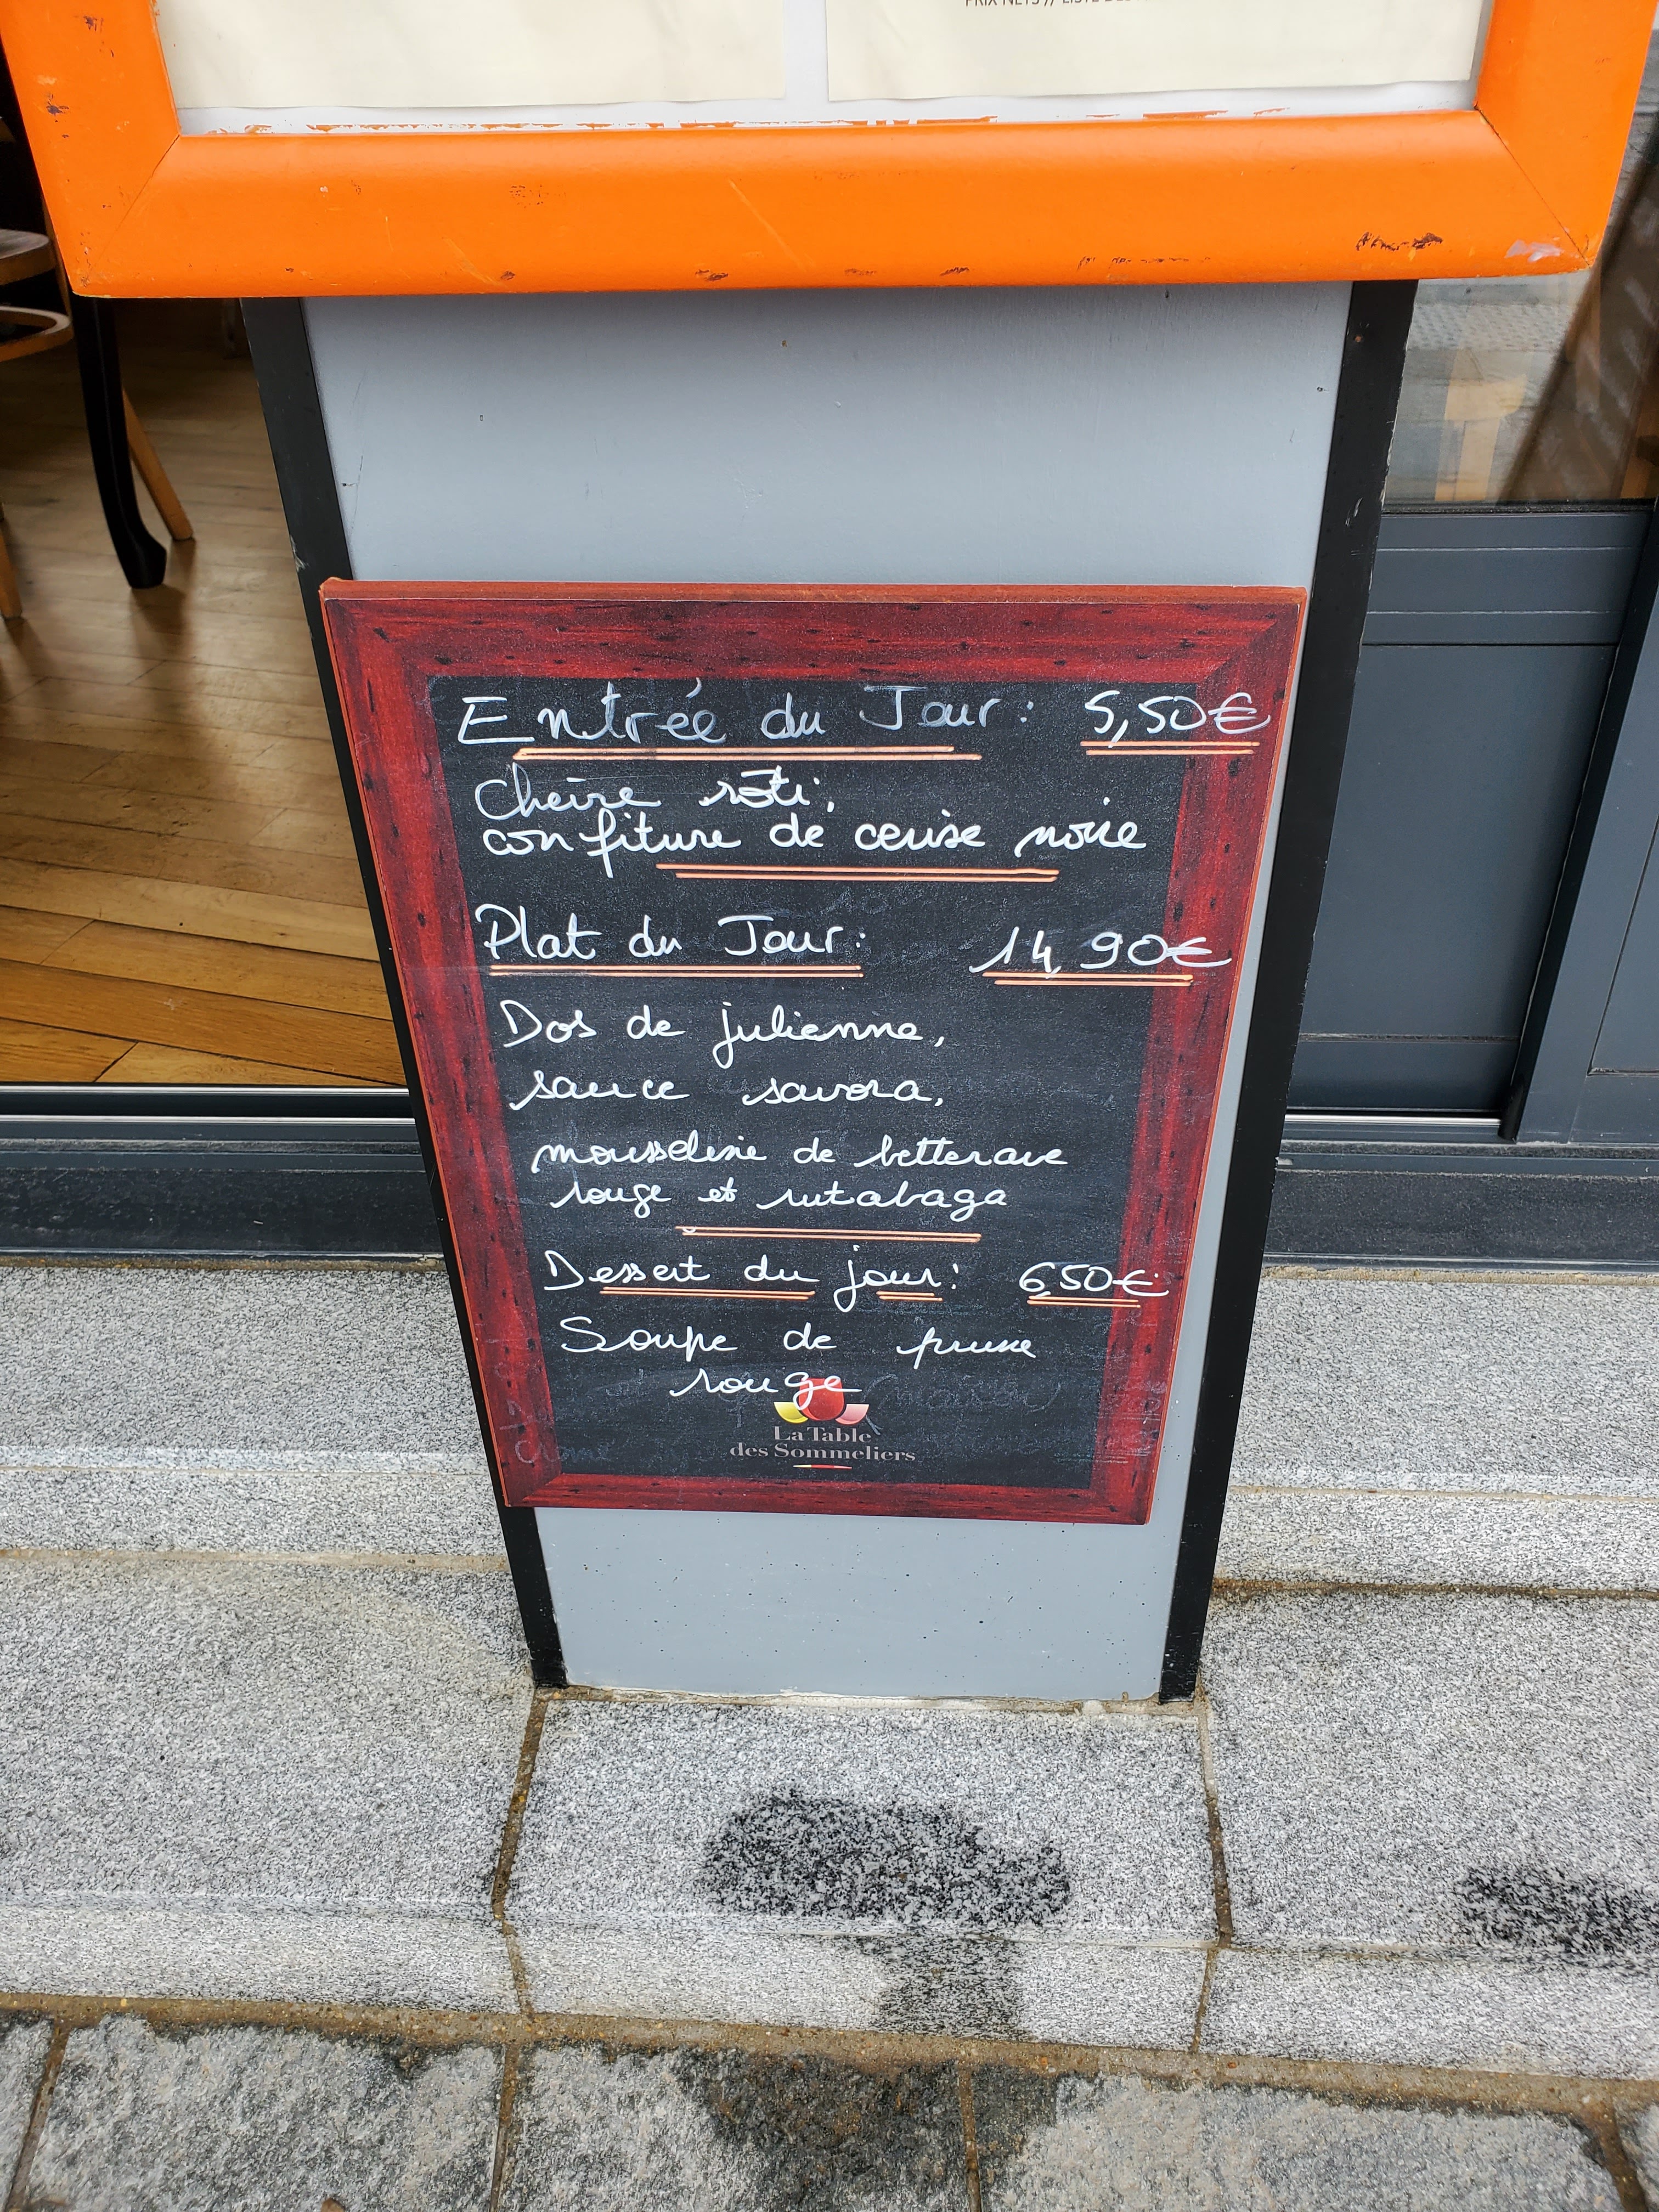 PRIX NETS // LISTE DES
Entrée du Jour : 5,50€
Chèvre rôti,
confiture de cerise noire
Plat du Jour : 14,90€
Dos de julienne,
sauce savora,
mousseline de betterave
rouge et rutabaga
Dessert du jour : 6,50€
Soupe de prune
rouge
La Table
des Sommeliers